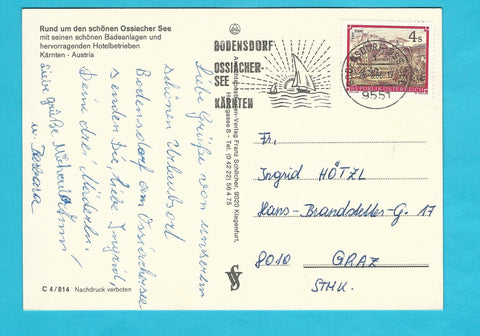 Rund um den schönen Ossiacher See
mit seinen schönen Badeanlagen und
hervorragenden Hotelbetrieben
Kärnten - Austria
Liebe Grüße von unserem
schönen Urlaubsort
Bodensdorf am Ossiachersee
senden Dir, liebe Ingrid,
Deine drei
Liebe Grüße
u. Barbara
C 4/814 Nachdruck verboten
Franz Schilcher, 9020 Klagenfurt,
8 - Tel. (0 42 22) 56 4 75
BODENSDORF
OSSIACHER-
SEE
KÄRNTEN
9551
4 s
REPUBLIK ÖSTERREICH
Fr.
Ingrid HÖTZL
Hans-Brandstetter-G. 17
8010 GRAZ
STMK.